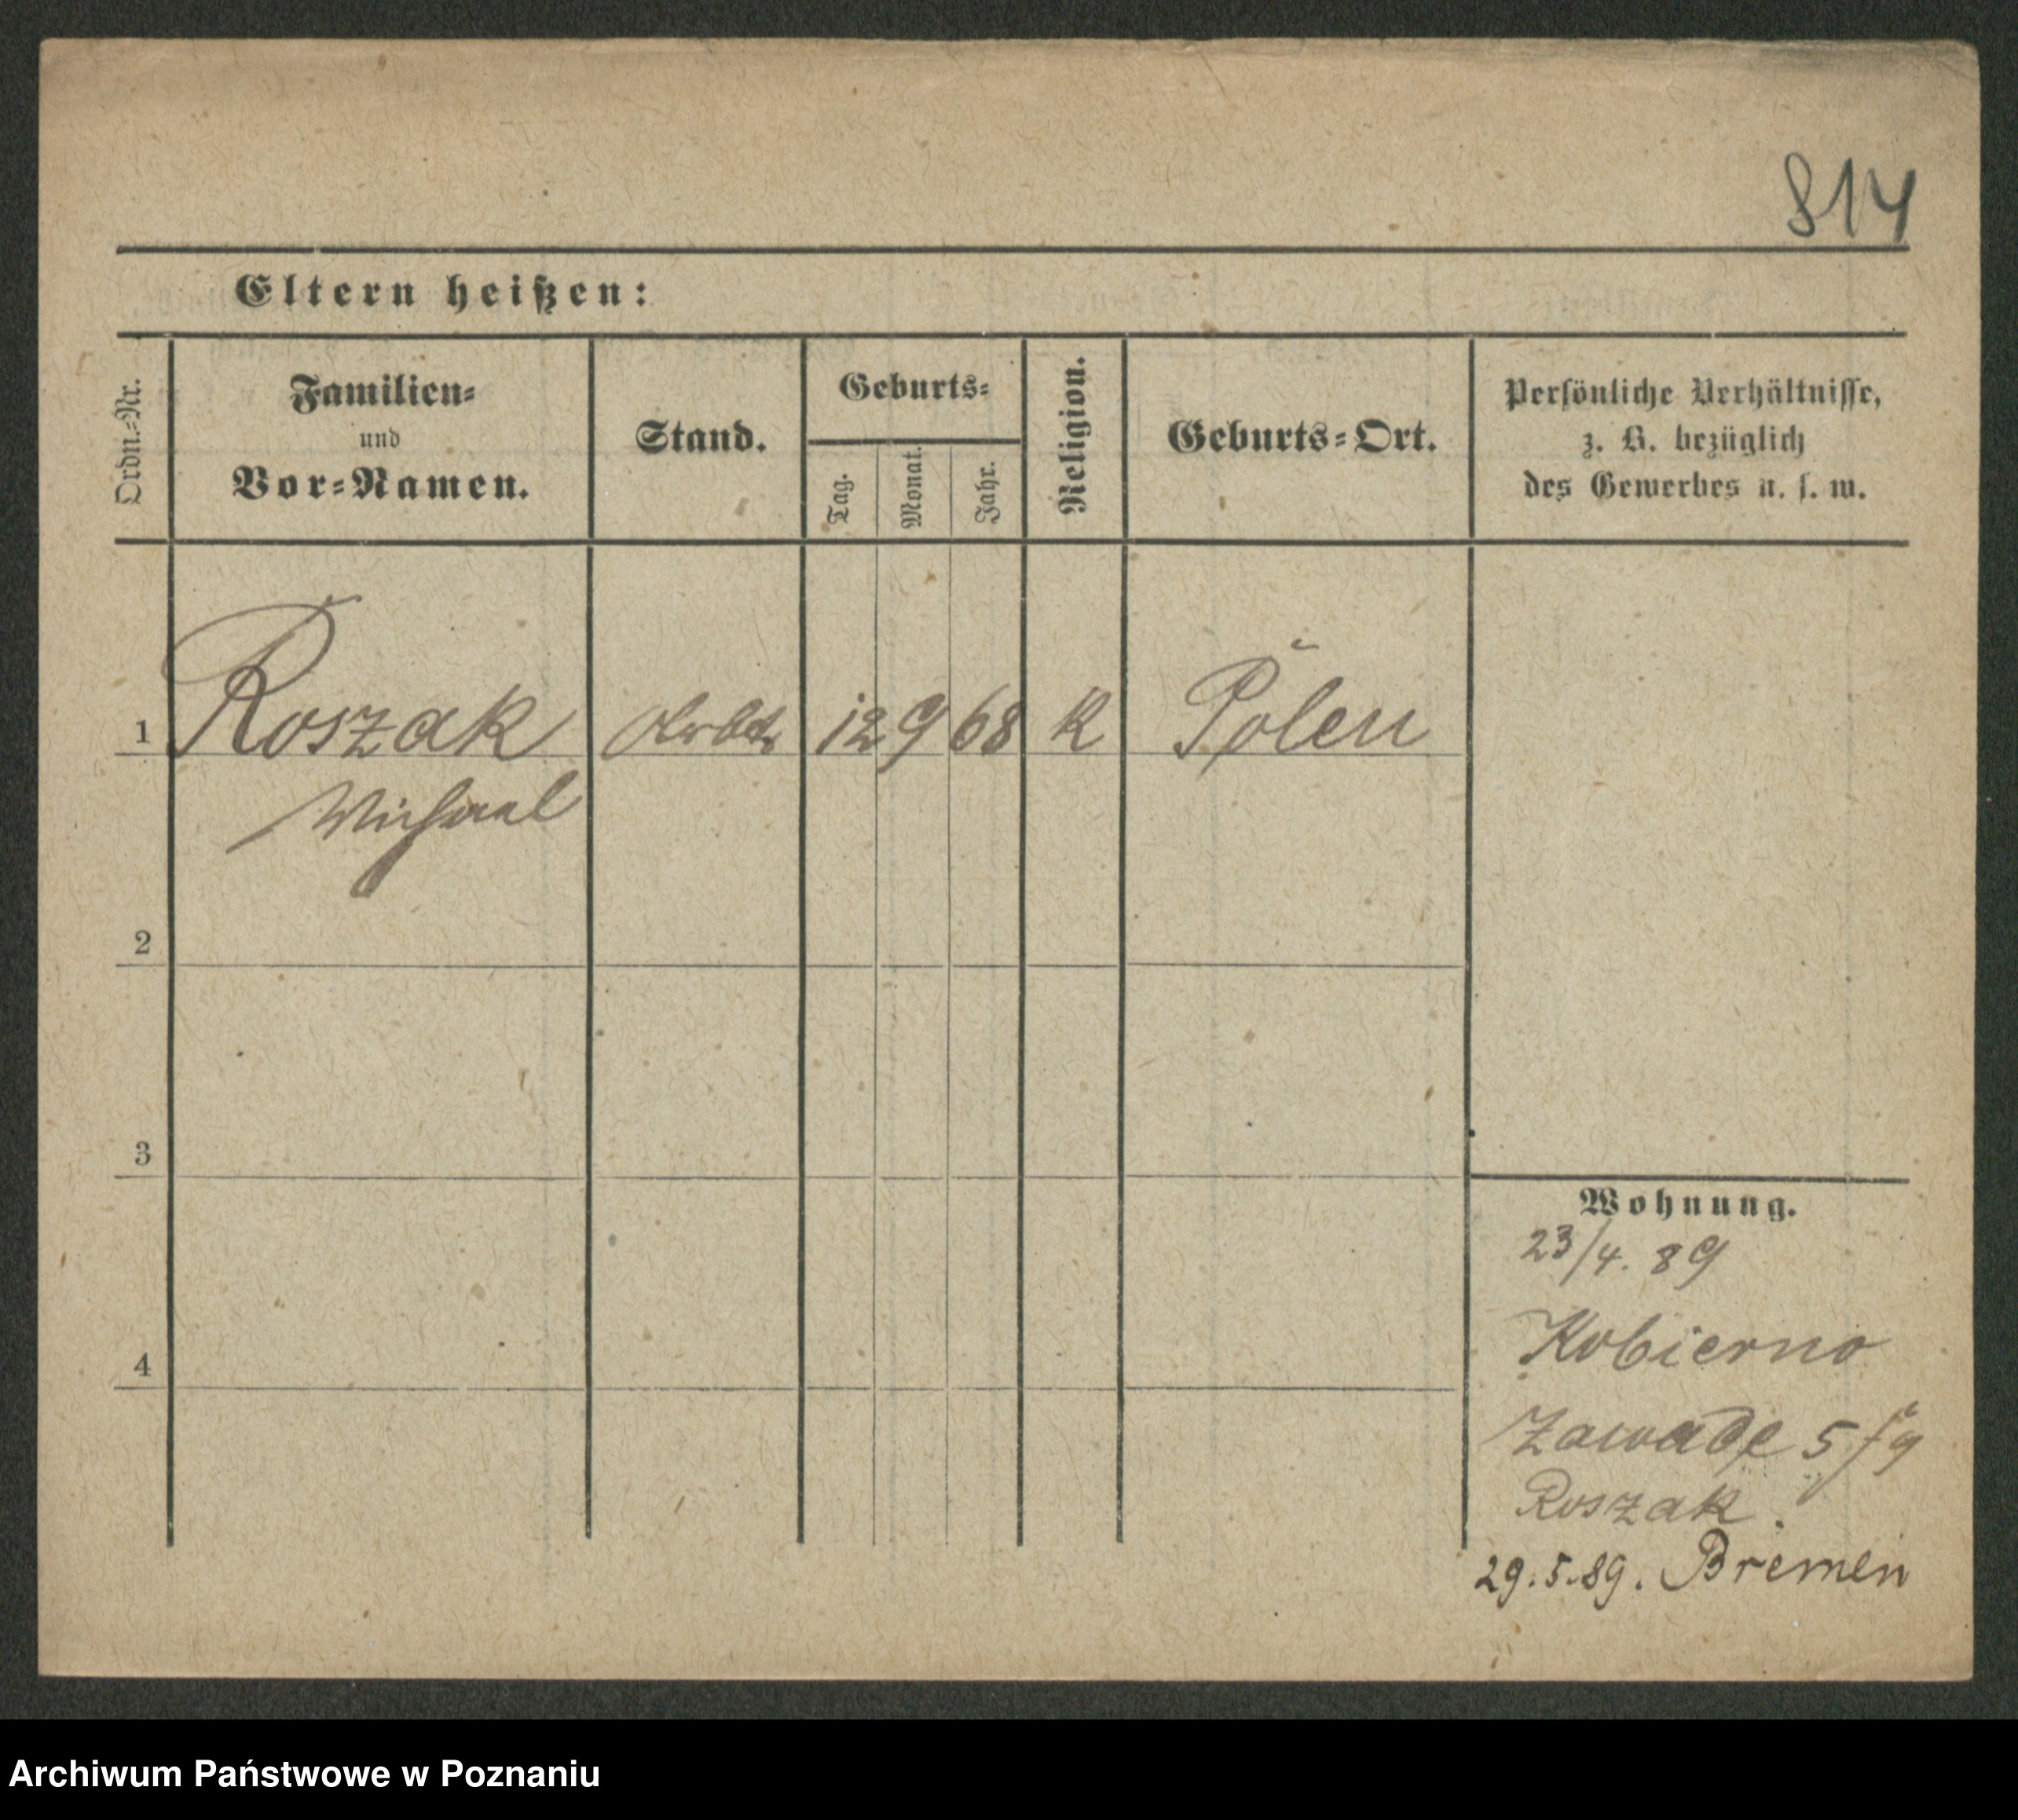 814
Eltern heißen:
Ordn.-Nr.
Familien-
und
Vor-Namen.
Stand.
Geburts-
Tag.
Monat.
Jahr.
Religion.
Geburts-Ort.
Persönliche Verhältnisse,
z. B. bezüglich
des Gewerbes u. s. w.
1 Roszak Arbtr 12 9 68 K Polen
Michael
2
3
4
Wohnung.
23/4. 89
Kobierno
Zawade 5
Roszak.
29.5.89. Bremen
Archiwum Państwowe w Poznaniu